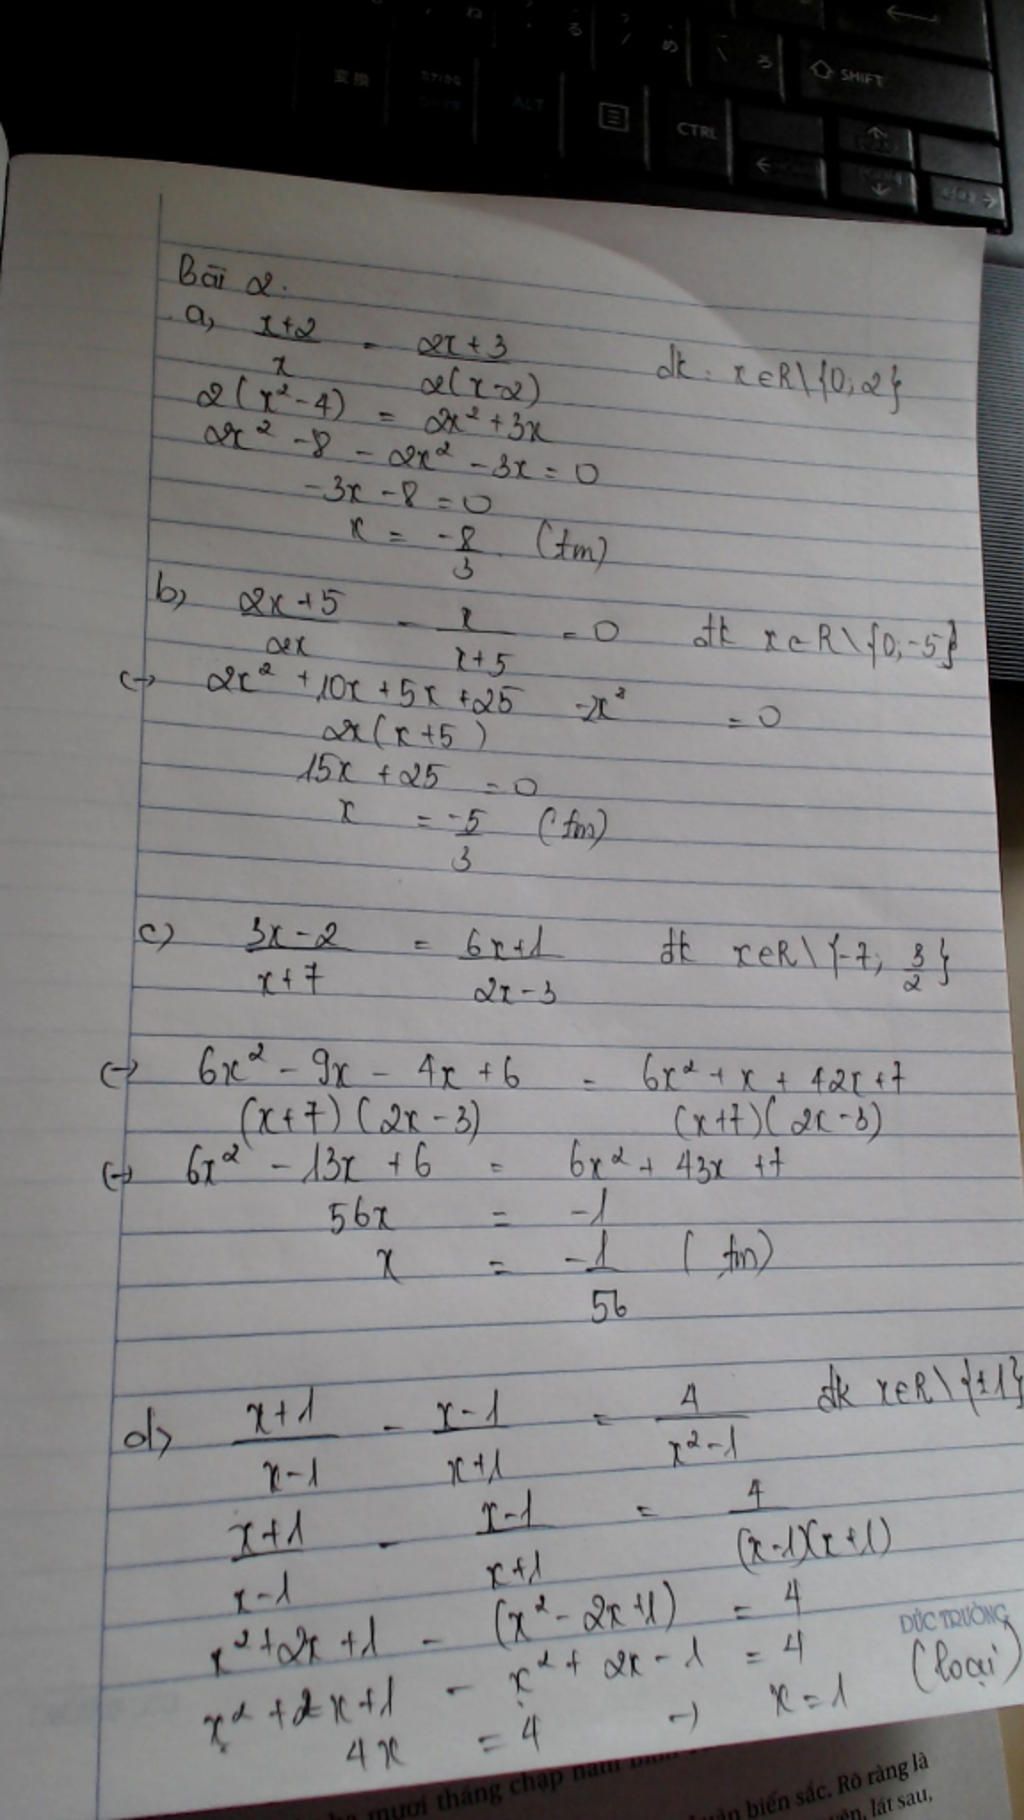 変換
ALT
CTRL
SHIFT
Bài 2.
a, x+2 / x = 2x+3 / 2(x-2) đk: x∈R\{0; 2}
2(x²-4) = 2x²+3x
2x²-8-2x²-3x=0
-3x-8=0
x = -8/3 (tm)
b, 2x+5 / 2x - x / x+5 = 0 đk x∈R\{0,-5}
<-> 2x²+10x+5x+25 -2x² / 2x(x+5) = 0
15x+25 = 0
x = -5/3 (tm)
c) 3x-2 / x+7 = 6x+1 / 2x-3 đk x∈R\{-7; 3/2}
<-> 6x²-9x-4x+6 / (x+7)(2x-3) = 6x²+x+42x+7 / (x+7)(2x-3)
<-> 6x²-13x+6 = 6x²+43x+7
56x = -1
x = -1/56 (tm)
d> x+1 / x-1 - x-1 / x+1 = 4 / x²-1 đk x∈R\{±1}
x+1 / x-1 - x-1 / x+1 = 4 / (x-1)(x+1)
x²+2x+1 - (x²-2x+1) = 4
x²+2x+1 - x²+2x-1 = 4
4x = 4 -> x=1 (loại)
ĐỨC TRƯỜNG
mươi tháng chạp năm
biến sắc. Rõ ràng là
lát sau,